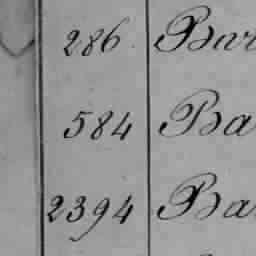 286 Bar
584 Ba
2394 Bar